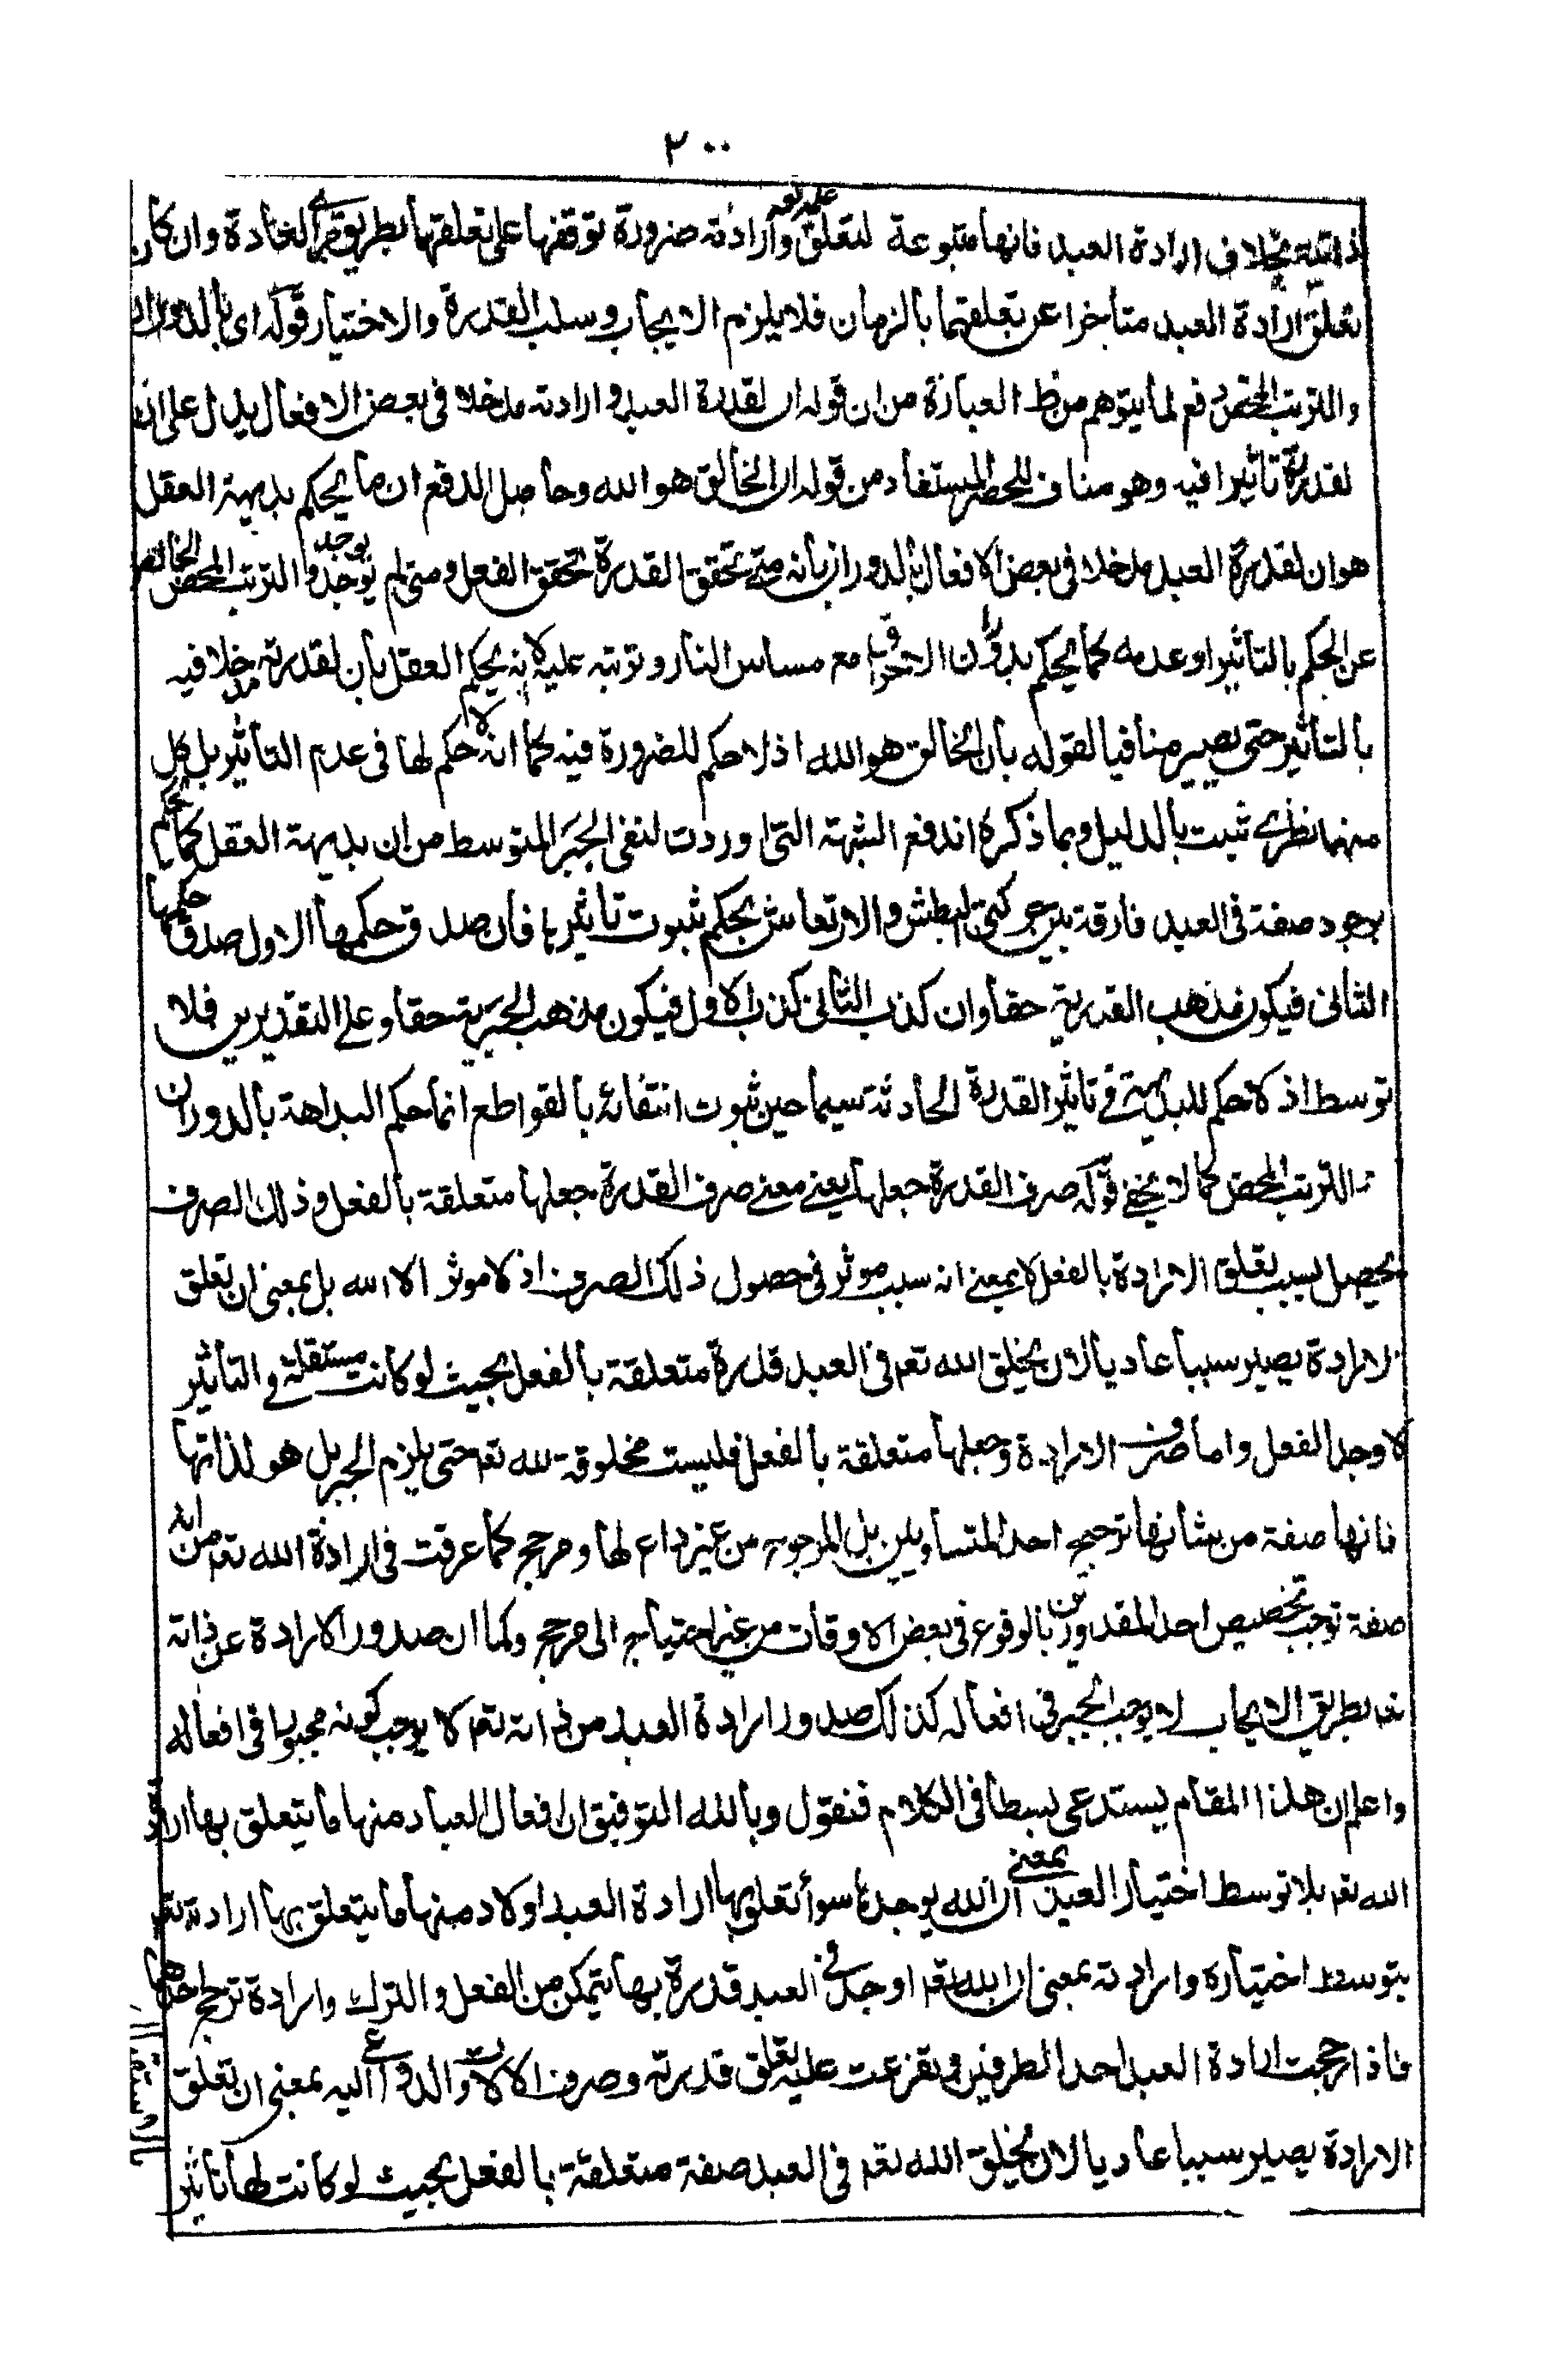 ٢٠٠
ذاتية بخلاف ارادة العبد فانها متبوعة لتعلق علمه تعه وارادته ضرورة توقفها على تعلقهما بطريق جرى العادة وان كان
تعلق ارادة العبد متأخرا عن تعلقهما بالزمان فلا يلزم الايجاب وسلب القدرة والاختيار قوله اى بالدوران
والترتب المحض دفع لما يتوهم من ظ العبارة من ان قوله ان لقدرة العبد وارادته مدخلا فى بعض الافعال يدل على ان
لقدرته تأثيرا فيه وهو مناف للحصر المستفاد من قوله ان الخالق هو الله وحاصل الدفع ان ما يحكم بديهة العقل
هو ان لقدرة العبد مدخلا فى بعض الافعال بالدوران بأنه متى تحقق القدرة تحقق الفعل ومتى لم يوجد لم يوجد والترتب المحض الخالص
عن الحكم بالتأثير او عدمه كما يحكم بدوران الاحتراق مع مساس النار وترتبه عليه لا انه يحكم العقل بأن لقدرته مدخلا فيه
بالتأثير حتى يصير منافيا لقوله بأن الخالق هو الله اذ لا حكم للضرورة فيه كما انه لا حكم لها فى عدم التأثير بل كل
منهما نظرى ثبت بالدليل وبما ذكره اندفع الشبهة التى اوردت لنفى الجبر المتوسط من ان بديهة العقل كما يحكم
بوجود صفة فى العبد فارقة بين حركتى البطش والارتعاش يحكم بثبوت تأثيرها فأن صدق حكمها الاول صدق حكمها
الثانى فيكون مذهب القدرية حقا وان كذب الثانى كذب الاول فيكون مذهب الجبرية حقا وعلى التقديرين فلا
توسط اذ لا حكم للبديهة فى تاثير القدرة الحادثة سيما حين ثبوت انتفائه بالقواطع انما حكم البداهة بالدوران
والترتب المحض كما لا يخفى قوله صرف القدرة جعلها يعنى معنى صرف القدرة جعلها متعلقة بالفعل وذلك الصرف
يحصل بسبب تعلق الارادة بالفعل لا بمعنى انه سبب موثر فى حصول ذلك الصرف اذ لا موثر الا الله بل بمعنى ان تعلق
الارادة يصير سببا عاديا لان يخلق الله تعه فى العبد قدرة متعلقة بالفعل بحيث لو كانت مستقلة فى التأثير
لاوجد الفعل واما صرف الارادة وجعلها متعلقة بالفعل فليست مخلوقة لله تعه حتى يلزم الجبر بل هو لذاتها
فانها صفة من شأنها ترجيح احد المتساويين بل المرجوح من غير داع لها ومرجح كما عرفت فى ارادة الله تعه من انه
صفة توجب تخصيص احد المقدورين بالوقوع فى بعض الاوقات من غير احتياج الى مرجح وكما ان صدور الارادة عن ذاته
تعه بطريق الايجاب لا يوجب الجبر فى افعاله كذلك صدور ارادة العبد من ذاته تعه لا يوجب كونه مجبورا فى افعاله
واعلم ان هذا المقام يستدعى بسطا فى الكلام فنقول وبالله التوفيق ان افعال العباد منها ما يتعلق بها ارادة
الله تعه بلا توسط اختيار العبد بمعنى ان الله يوجدها سوأ تعلق بها ارادة العبد او لا ومنها ما يتعلق بها ارادته تعه
بتوسط اختياره وارادته بمعنى ان الله تعه اوجد فى العبد قدرة بها يتمكن من الفعل والترك وارادة ترجح احدهما
فاذا رجحت ارادة العبد احد الطرفين يتفرعت عليه تعلق قدرته وصرف الالات والدواعى اليه بمعنى ان تعلق
الارادة يصير سببا عاديا لان يخلق الله تعه فى العبد صفة متعلقة بالفعل بحيث لو كانت لها تأثير